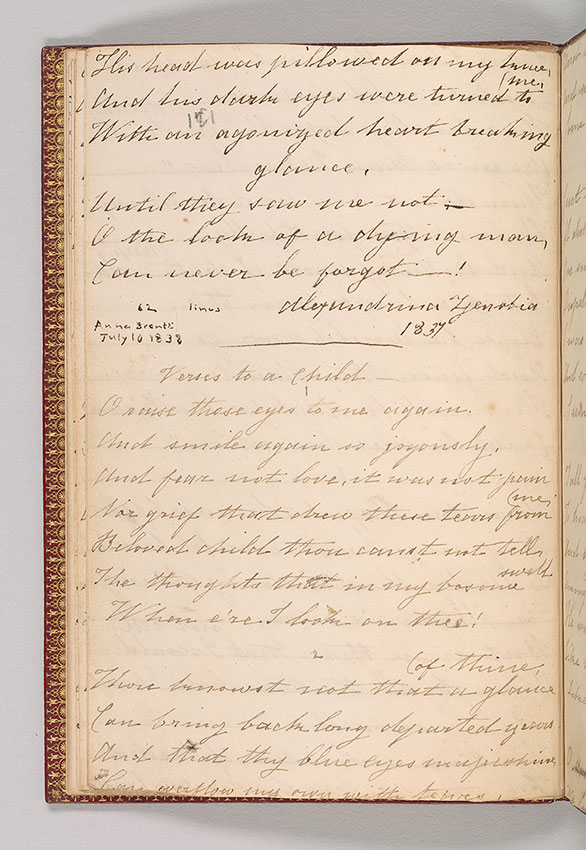 His head was pillowed on my knee,
(me,
And his dark eyes were turned to
With an agonized heart breaking
glance,
Until they saw me not —
O the look of a dying man,
Can never be forgot — !
62 lines
Alexandrina Zenobia
1837
Anna Brontë
July 10 1838
Verses to a Child —
1
O raise those eyes to me again
And smile again so joyously,
And fear not love, it was not pain
(me,
Nor grief that drew these tears from
Beloved child thou canst not tell,
swell
The thoughts that in my bosome
When e're I look on thee!
2
(of thine,
Thou knowst not that a glance
Can bring back long departed years
And that thy blue eyes magic shine
Can overflow my own with tears,